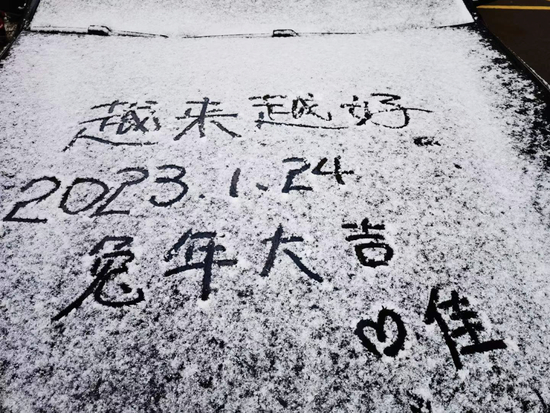 越来越好
2023.1.24
兔年大吉
佳